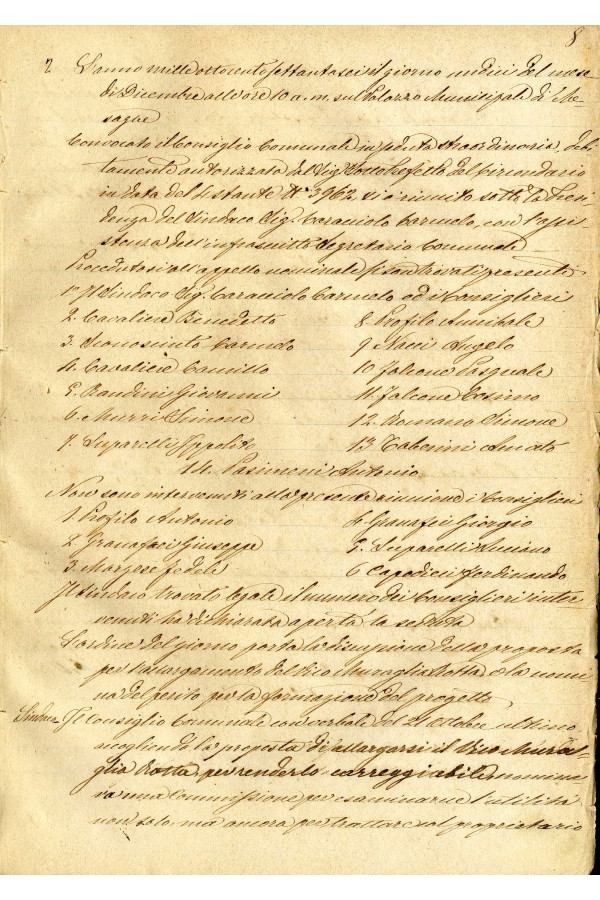 8
2 L'anno mille ottocento settantasei il giorno undici del mese
di Dicembre all'ore 10 a. m. sul Palazzo Municipale di Me-
sagne
Convocato il Consiglio Comunale in seduta straordinaria, debi-
tamente autorizzata dal Sig. Sotto Prefetto del Circondario
in data del 4 stante N. 3962, si è riunito sotto la Presi-
denza del Sindaco Sig. Caracciolo Carmelo, con l'assi-
stenza dell'infrascritto Segretario Comunale
Procedutosi all'appello nominale si son trovati presenti
1° Il Sindaco Sig. Caracciolo Carmelo ed i Consiglieri
2. Cavaliere Benedetto 8 Profilo Annibale
3. Carmelo 9 Nacci Angelo
4. Cavaliere Camillo 10 Falcone Pasquale
5. Giovanni 11. Falcone Cosimo
6. Murri Simone 12. Romano Simone
7. Luparelli Ippolito 13 Taberini Amato
14. Pasimeni Antonio
Non sono intervenuti alla presente riunione i Consiglieri
1. Profilo Antonio 4 Granafei Giorgio
2. Granafei Giuseppe 5. Luparelli Luciano
3. Marzese fedele 6 Capodieci Ferdinando
Il Sindaco trovato legale il numero dei Consiglieri inter-
venuti ha dichiarata aperta la seduta
L'ordine del giorno porta la discussione della proposta
per l'allargamento del Vico Muraglia Rotta e la nomi-
na del perito per la formazione del progetto
Sindaco Il Consiglio Comunale con verbale del 21 Ottobre ultimo
accogliendo la proposta di allargarsi il Vico Mura-
glia Rotta, per renderlo carreggiabile nomina-
va una Commissione per esaminarne l'utilità
non solo, ma ancora per trattare col proprietario